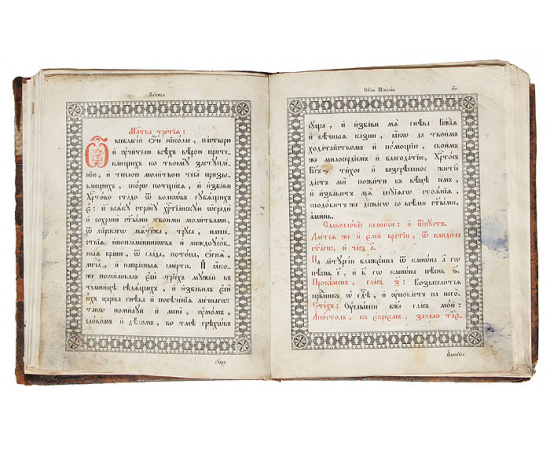 Слꙋжба
Мл҃тва третїѧ:
всебл҃гїй ѻ҆́ч҃е нїколае, пастырю
и҆ ѹ҆чи́телю всѣ́хъ вѣ́рою прите-
ка́ющихъ ко твоемꙋ̀ застꙋпле́-
нїю, и҆ те́плою моли́твою тебѐ призы-
ва́ющихъ, ско́рѡ потщи́сѧ, и҆ и҆зба́ви
хрⷭ҇то́во ста́до ѿ волкѡ́въ гꙋбѧ́щихъ
є҆̀: и҆ всѧ́кꙋ странꙋ̀ хрⷭ҇тїа́нскꙋю ѡ҆градѝ
и҆ сохранѝ ст҃ы́ми твои́ми моли́твами,
ѿ мїрска́гѡ мѧте́жа, трꙋ́са, наше́-
ствїѧ и҆ноплеме́нникѡвъ и҆ междоꙋсо́б-
ныѧ бра́ни, ѿ гла́да, пото́па, ѻ҆гнѧ̀,
меча̀, и҆ напра́сныѧ сме́рти. И҆ ꙗ҆́ко-
же поми́ловалъ є҆сѝ трїе́хъ мꙋже́й въ
темни́цѣ сѣдѧ́щихъ, и҆ и҆зба́вилъ є҆сѝ
и҆̀хъ царе́ва гнѣ́ва и҆ посѣче́нїѧ ме́чнагѡ:
та́кѡ поми́лꙋй и҆ менѐ, ᲂу҆мо́мъ,
сло́вомъ и҆ дѣ́ломъ, во тмѣ̀ грѣхѡ́въ
сꙋща
Ст҃ы́ѧ Нїко́лы
сꙋ́ща, и҆ и҆зба́ви мѧ̀ гнѣ́ва бж҃їѧ
и҆ вѣ́чныѧ ка́зни, ꙗ҆́кѡ да твои́мъ
хода́тайствомъ и҆ по́мощїю, свои́мъ
же милосе́рдїемъ и҆ благода́тїю, хрⷭ҇то́съ
бг҃ъ ти́хое и҆ безгрѣ́шное житїѐ
да́стъ мѝ пожи́ти въ вѣ́цѣ се́мъ,
и҆ и҆зба́витъ мѧ̀ шꙋ́їѧгѡ стоѧ́нїѧ,
сподо́битъ же деснагѡ со всѣ́ми ст҃ы́ми,
а҆ми́нь.
Славосло́вїе вели́кое: и҆ ѿпꙋ́стъ.
Дае́тсѧ же и҆ є҆ле́й бра́тїи, ѿ канди́ла
ст҃а́гѡ, и҆ ча́съ а҃.
На лїтꙋргі́и бл҃же́нна ѿ кано́на а҃-гѡ
пѣ́снь г҃, и҆ в҃-гѡ кано́на пѣ́снь ѕ҃.
Проки́менъ, гла́съ з҃: Возвесели́тсѧ
пра́ведникъ ѡ҆ гдⷭ҇ѣ, и҆ ᲂу҆пова́етъ на него̀.
Сті́хъ: Оу҆слы́ши бж҃е гла́съ мо́й:
А҆пⷭ҇толъ, къ є҆вре́ємъ, зача́ло